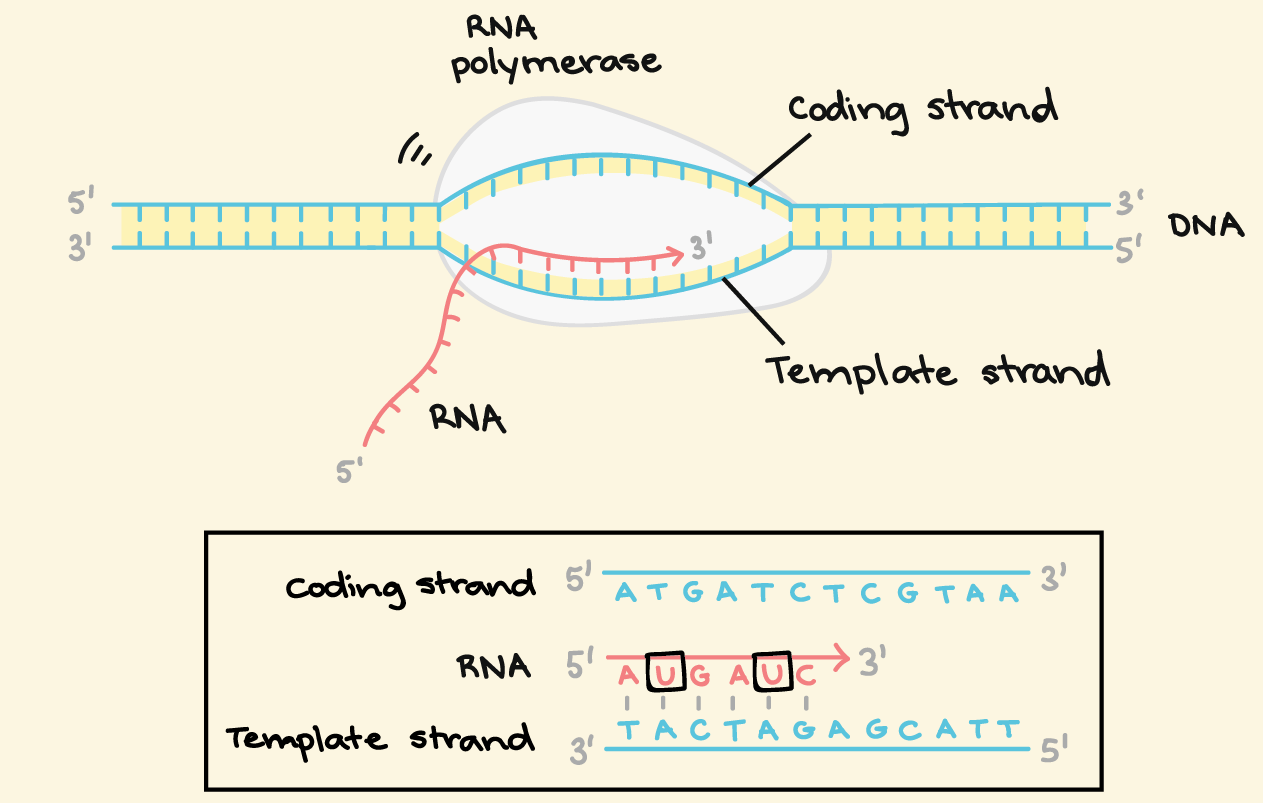 RNA
polymerase
Coding strand
5'
3'
3'
5'
DNA
3'
Template strand
RNA
5'
Coding strand 5' A T G A T C T C G T A A 3'
RNA 5' A U G A U C 3'
Template strand 3' T A C T A G A G C A T T 5'